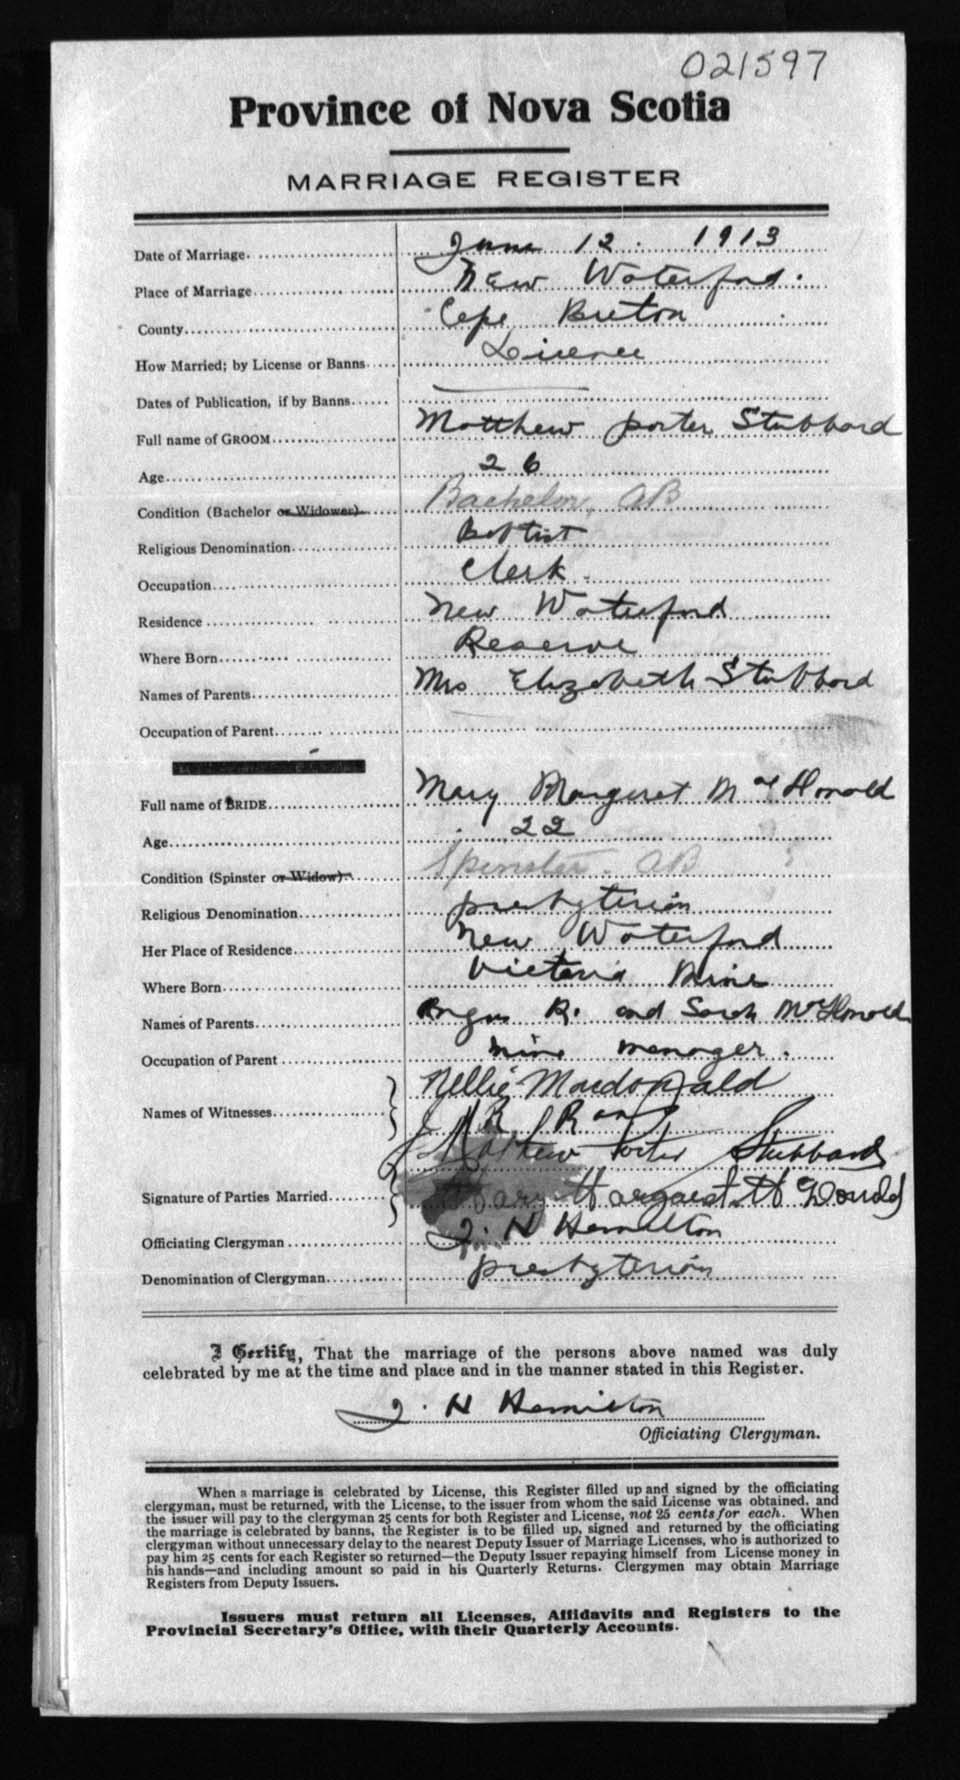 021597
Province of Nova Scotia
MARRIAGE REGISTER
Date of Marriage June 12. 1913
Place of Marriage New Waterford.
County Cape Breton
How Married; by License or Banns License
Dates of Publication, if by Banns
Full name of GROOM Matthew porter Stubbard
Age 26
Condition (Bachelor or Widower) Bachelor, AB
Religious Denomination Baptist
Occupation Clerk.
Residence New Waterford
Where Born Reserve
Names of Parents Mrs Elizabeth Stubbard
Occupation of Parent
Full name of BRIDE Mary Margaret McDonald
Age 22
Condition (Spinster or Widow) Spinster. AB
Religious Denomination presbyterian
Her Place of Residence New Waterford
Where Born Victoria Mine
Names of Parents Angus R. and Sarah McDonald
Occupation of Parent mine manager.
Names of Witnesses Nellie Macdonald
R
Signature of Parties Married Mathew Porter Stubbard
Mary Margaret McDonald
Officiating Clergyman J. H Hamilton
Denomination of Clergyman presbyterian
I Certify, That the marriage of the persons above named was duly
celebrated by me at the time and place and in the manner stated in this Register.
J. H Hamilton
Officiating Clergyman.
When a marriage is celebrated by License, this Register filled up and signed by the officiating
clergyman, must be returned, with the License, to the issuer from whom the said License was obtained, and
the issuer will pay to the clergyman 25 cents for both Register and License, not 25 cents for each. When
the marriage is celebrated by banns, the Register is to be filled up, signed and returned by the officiating
clergyman without unnecessary delay to the nearest Deputy Issuer of Marriage Licenses, who is authorized to
pay him 25 cents for each Register so returned—the Deputy Issuer repaying himself from License money in
his hands—and including amount so paid in his Quarterly Returns. Clergymen may obtain Marriage
Registers from Deputy Issuers.
Issuers must return all Licenses, Affidavits and Registers to the
Provincial Secretary's Office, with their Quarterly Accounts.